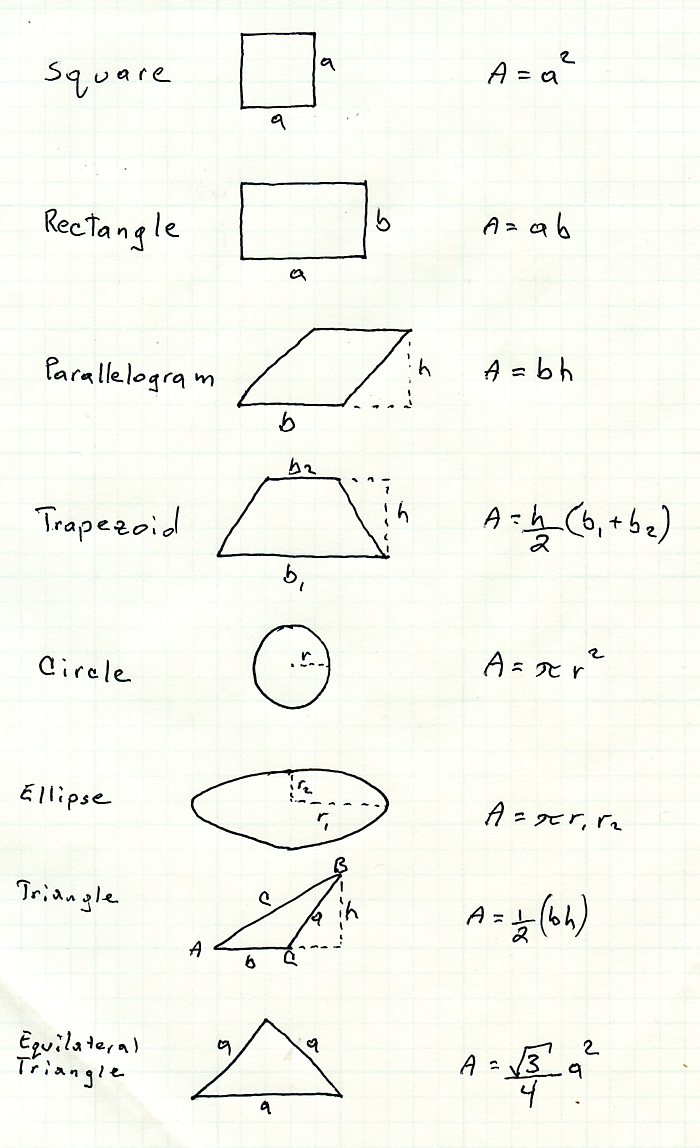 Square
a
a
A = a²
Rectangle
b
a
A = ab
Parallelogram
h
b
A = bh
b₂
Trapezoid
h
b₁
A = h/2 (b₁ + b₂)
Circle
r
A = πr²
Ellipse
r₂
r₁
A = πr₁r₂
Triangle
B
c
a
h
A
b
C
A = 1/2 (bh)
Equilateral
Triangle
a
a
a
A = √3/4 a²